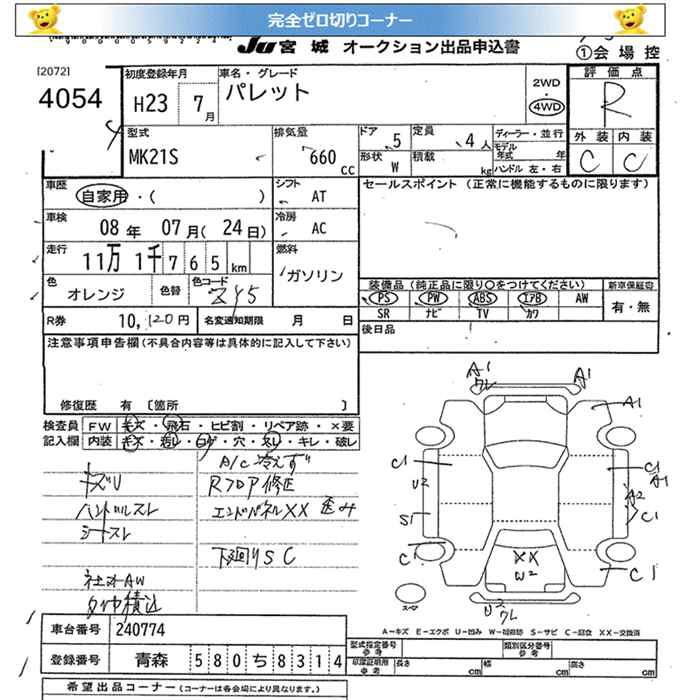 完全ゼロ切りコーナー
JU 宮城 オークション出品申込書
①会場控
[2072]
4054
初度登録年月
H23 7月
車名・グレード
パレット
2WD
4WD
評価点
R
型式
MK21S
排気量
660 CC
ドア 5
定員 4人
形状 W
積載 kg
ディーラー・並行
モデル年式 年
ハンドル 左・右
外装 内装
C C
車歴 自家用・( )
シフト AT
セールスポイント (正常に機能するものに限ります)
車検 08年 07月(24日)
冷房 AC
走行 11万 1千 7 6 5 km
燃料 ガソリン
色 オレンジ 色替 色コード
装備品 (純正品に限り○をつけてください) 新車保証書
PS PW ABS エアB AW 有・無
SR ナビ TV カワ
R券 10,120円 名変通知期限 月 日
後日品
注意事項申告欄 (不具合内容等は具体的に記入して下さい)
修復歴 有 〔箇所 〕
検査員 FW キズ・飛石・ヒビ割・リペア跡・×要
記入欄 内装 キズ・汚レ・コゲ・穴・スレ・キレ・破レ
A/C冷えず
キズU Rフロア修正
ハンドルスレ エンドパネルXX 歪み
シートスレ
下廻りSC
社外AW
タイヤ積込
A1 A1
ワレ
A1
C1 C1
A1
U2 A2
S1 C1
C C1
XX
W2
U2
ワレ
スペア
A−キズ E−エクボ U−凹み W−補修跡 S−サビ C−腐食 XX−交換済
車台番号 240774
登録番号 青森 580ち8314
型式指定番号 参考 類別区分番号 参考
車庫証明用 参考 長さ cm 幅 cm 高さ cm
希望出品コーナー (コーナーは各会場により異なります。)